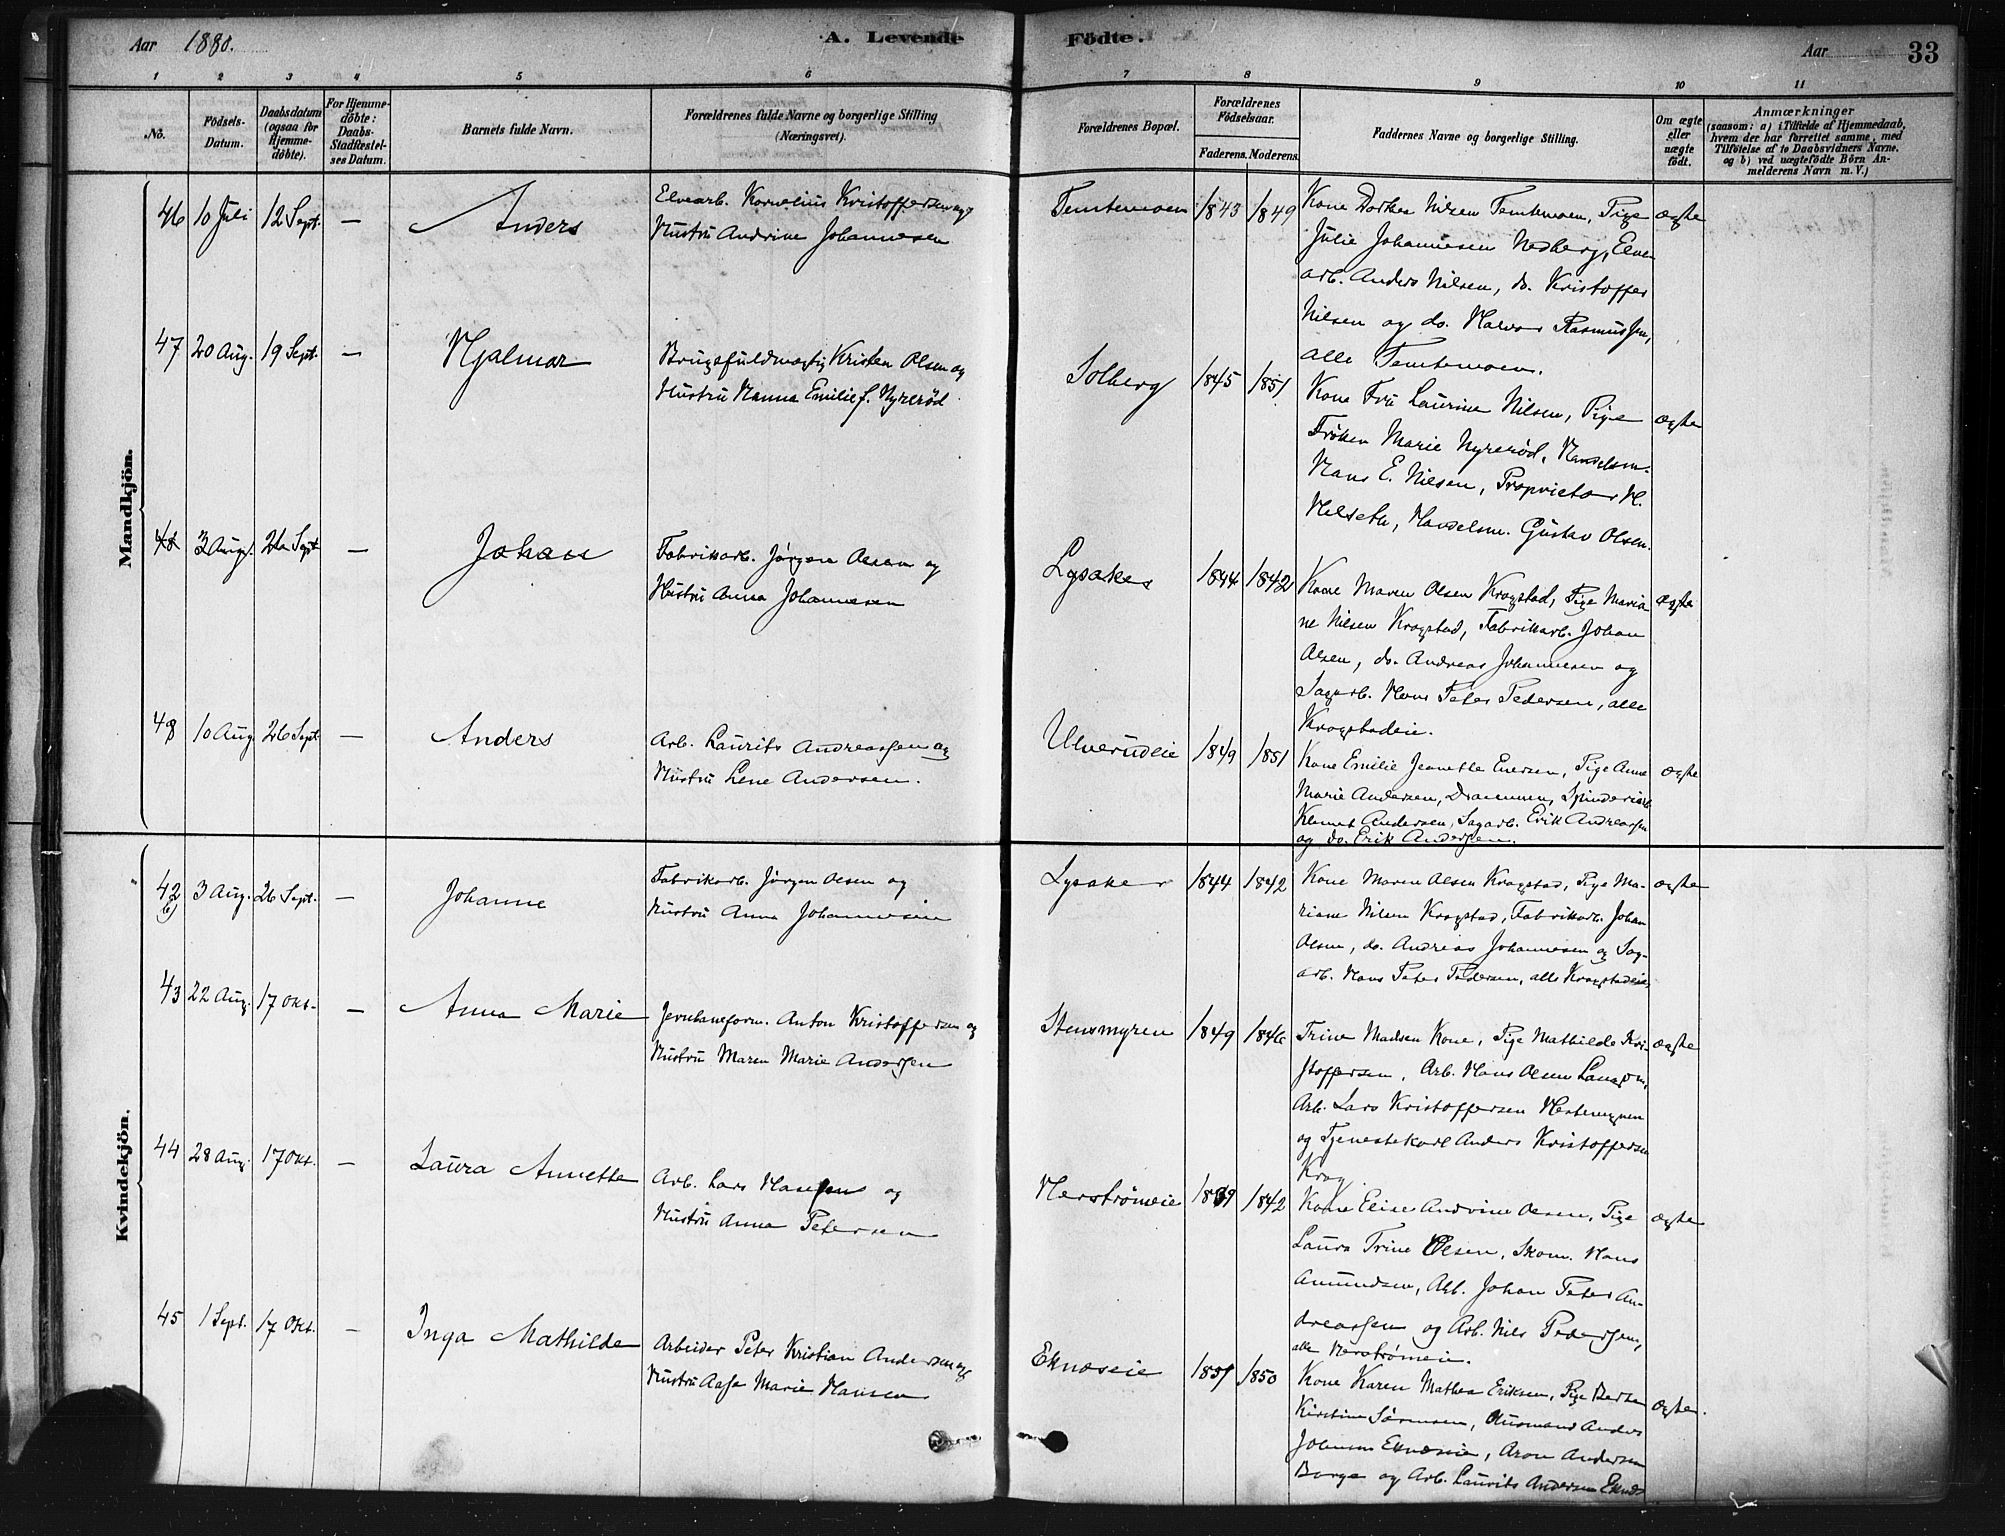 Aar 1880.
A. Levende Födte.
Aar
33
1 2 3 4 5 6 7 8 9 10 11
No.
Födsels-Datum.
Daabsdatum (ogsaa for Hjemme-döbte).
For Hjemme-döbte: Daabs-Stadfæstel-ses Datum.
Barnets fulde Navn.
Forældrenes fulde Navne og borgerlige Stilling (Næringsvei).
Forældrenes Bopæl.
Forældrenes Födselsaar.
Faderens. Moderens.
Faddernes Navne og borgerlige Stilling.
Om ægte eller uægte födt.
Anmærkninger
(saasom: a) i Tilfælde af Hjemmedaab, hvem der har forrettet samme, med Tilföielse af to Daabsvidners Navne, og b) ved uægtefödte Börn An-melderens Navn m. V.)
Mandkjön.
46 10 Juli 12 Sept. — Anders
Elvearb. Kornelius Kristoffersen og
Hustru Andrine Johannesen
Temtemoen 1843 1849
Kone Dorthea Nilsen Temtemoen, Pige
Julie Johannesen Nedberg, Elve
arb. Anders Nilsen, do. Kristoffer
Nilsen og do. Halvor Rasmussen,
alle Temtemoen.
ægte
47 20 Aug. 19 Sept. — Hjalmar
Brugsfuldmægtig Kristen Olsen og
Hustru Hanna Emilie f. Nyrerød
Solberg 1845 1851
Kone Fru Laurine Nilsen, Pige
Frøken Marie Nyrerød, Handelsm.
Hans E. Nilsen, Proprietær H.
Helseth, Handelsm. Gustav Olsen.
ægte
48 3 Aug. 26 Sept — Johan
Fabrikarb. Jørgen Olsen og
Hustru Anna Johannesen
Lysaker 1844 1842
Kone Maren Olsen Kragstad, Pige Maria
ne Nilsen Kragstad, Fabrikarb. Johan
Olsen, do. Andreas Johannesen og
Sagarb. Hans Peter Pedersen, alle
Kragstadeie.
ægte
48 10 Aug 26 Sept. — Anders
Arb. Laurits Andreassen og
Hustru Lene Andersen.
Ulverudeie 1849 1851
Kone Emilie Jeanette Enersen, Pige Anne
Marie Andersen, Drammen, Spinderiarb.
Klemet Andersen, Sagarb. Erik Andreassen
og do. Erik Anderssen.
ægte
Kvindekjön.
42 b) 3 Aug. 26 Sept. — Johanne
Fabrikarb. Jørgen Olsen og
Hustru Anna Johannesen
Lysaker 1844 1842
Kone Maren Olsen Kragstad, Pige Ma-
riane Nilsen Kragstad, Fabrikarb. Johan
Olsen, do. Andreas Johannesen og Sag-
arb. Hans Peter Pedersen, alle Kragstadeie.
ægte
43 22 Aug. 17 Okt. — Anna Marie
Jernbaneform. Anton Kristoffersen og
Hustru Maren Marie Anderssen
Stensmyren 1849 1846
Trine Madsen Kone, Pige Mathilde Kri-
stoffersen, Arb. Hans Olsen
Arb. Lars Kristoffersen
og Tjenestekarl Anders Kristoffersen
Krog
ægte
44 28 Aug. 17 Okt. — Laura Annette
Arb. Lars Hansen og
Hustru Anna Petersen
Herstrømeie 1839 1842
Kone Elise Andrine Olsen, Pige
Laura Trine Olsen, Skom. Hans
Amundsen, Arb. Johan Peter An-
dreassen og Arb. Nils Pederssen,
alle Herstrømeie.
ægte
45 1 Sept. 17 Okt. — Inga Mathilde
Arbeider Peter Kristian Andersen og
Hustru Aase Marie Hansen
Eknæseie 1851 1850
Kone Karen Mathea Eriksen, Pige Berthe
Kirstine Sørensen, Husmand Anders
Johannes Eknæseie, Aron Andersen
Borge og Arb. Laurits Andersen Eknæs
ægte.